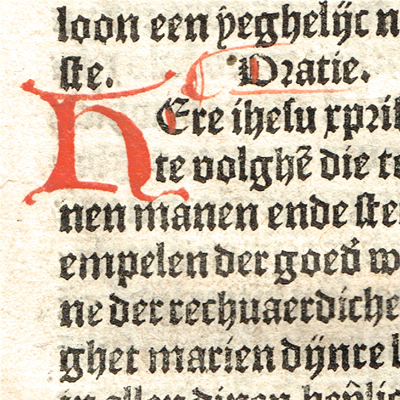 loon een yeghelijc n
ste. Oratie.
HEre ihesu xpris
te volghē die te
nen manen ende ste
empelen der goed̄ w
ne der rechuaerdiche
ghet marien dijnre l
in allen dinen heylic